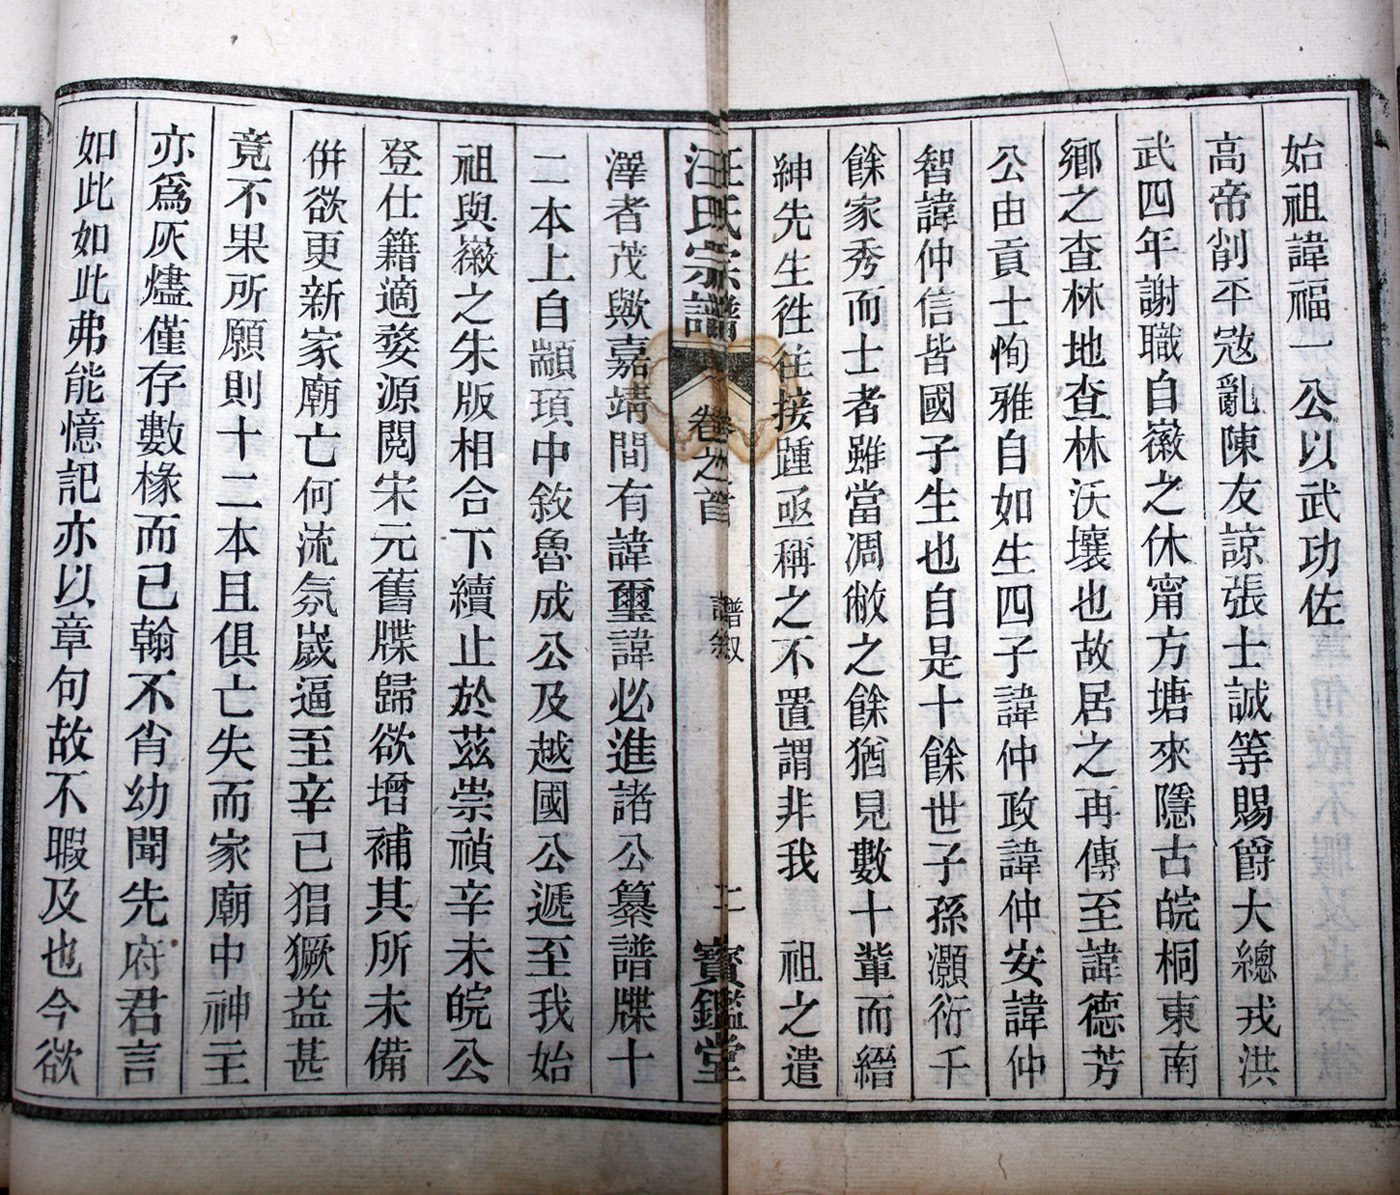 始祖諱福一 公以武功佐
高帝削平寇亂陳友諒張士誠等賜爵大總戎洪
武四年謝職自徽之休甯方塘來隱古皖桐東南
鄉之查林地查林沃壤也故居之再傳至諱德芳
公由貢士恂雅自如生四子諱仲政諱仲安諱仲
智諱仲信皆國子生也自是十餘世子孫灝衍千
餘家秀而士者雖當凋敝之餘猶見數十輩而縉
紳先生徃徃接踵亟稱之不置謂非我 祖之遺
汪氏宗譜 卷之首 譜敘 二 寶鑑堂
澤者茂歟嘉靖間有諱璽諱必進諸公纂譜牒十
二本上自顓頊中敘魯成公及越國公遞至我始
祖與徽之朱版相合下續止於茲崇禎辛未皖公
登仕籍適婺源閱宋元舊牒歸欲增補其所未備
併欲更新家廟亡何流氛嵗逼至辛巳猖獗益甚
竟不果所願則十二本且俱亡失而家廟中神主
亦為灰燼僅存數椽而已翰不肖幼聞先府君言
如此如此弗能憶記亦以章句故不暇及也今欲